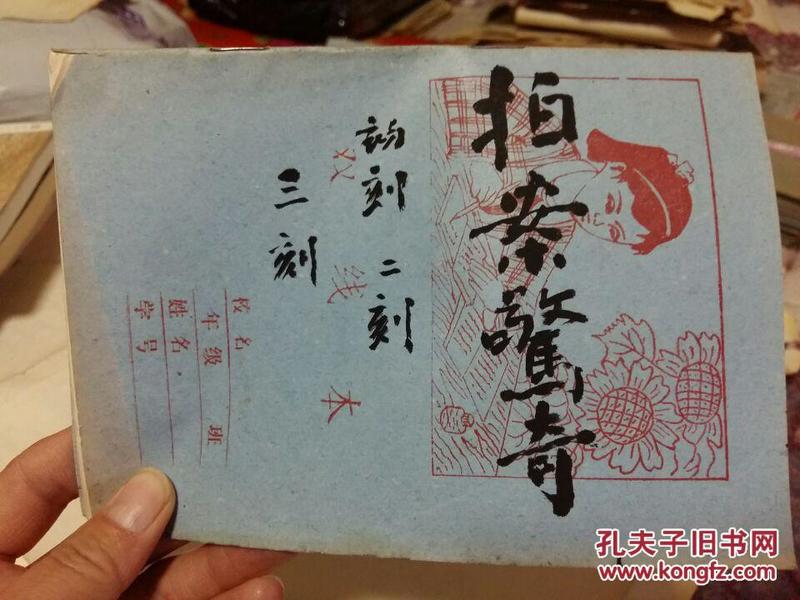 拍案驚奇
初刻 二刻
三刻
双线本
校名
年级 班
姓名
学号
孔夫子旧书网
www.kongfz.com